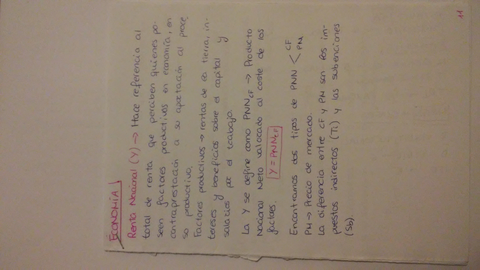 ECONOMÍA
Renta Nacional (Y) → Hace referencia al
total de renta que perciben quienes po-
seen factores productivos en economía, en
contraprestación a su aportación al proce
so productivo.
Factores productivos → rentas de la tierra, in-
tereses y beneficios sobre el capital y
salarios por el trabajo.
La Y se define como PNNcf → Producto
Nacional Neto valorado al coste de los
factores. Y = PNNcf
Encontramos dos tipos de PNN < CF
PM
PM → Precio de mercado
La diferencia entre CF y PM son los im-
puestos indirectos (Ti) y las subvenciones
(Sb)